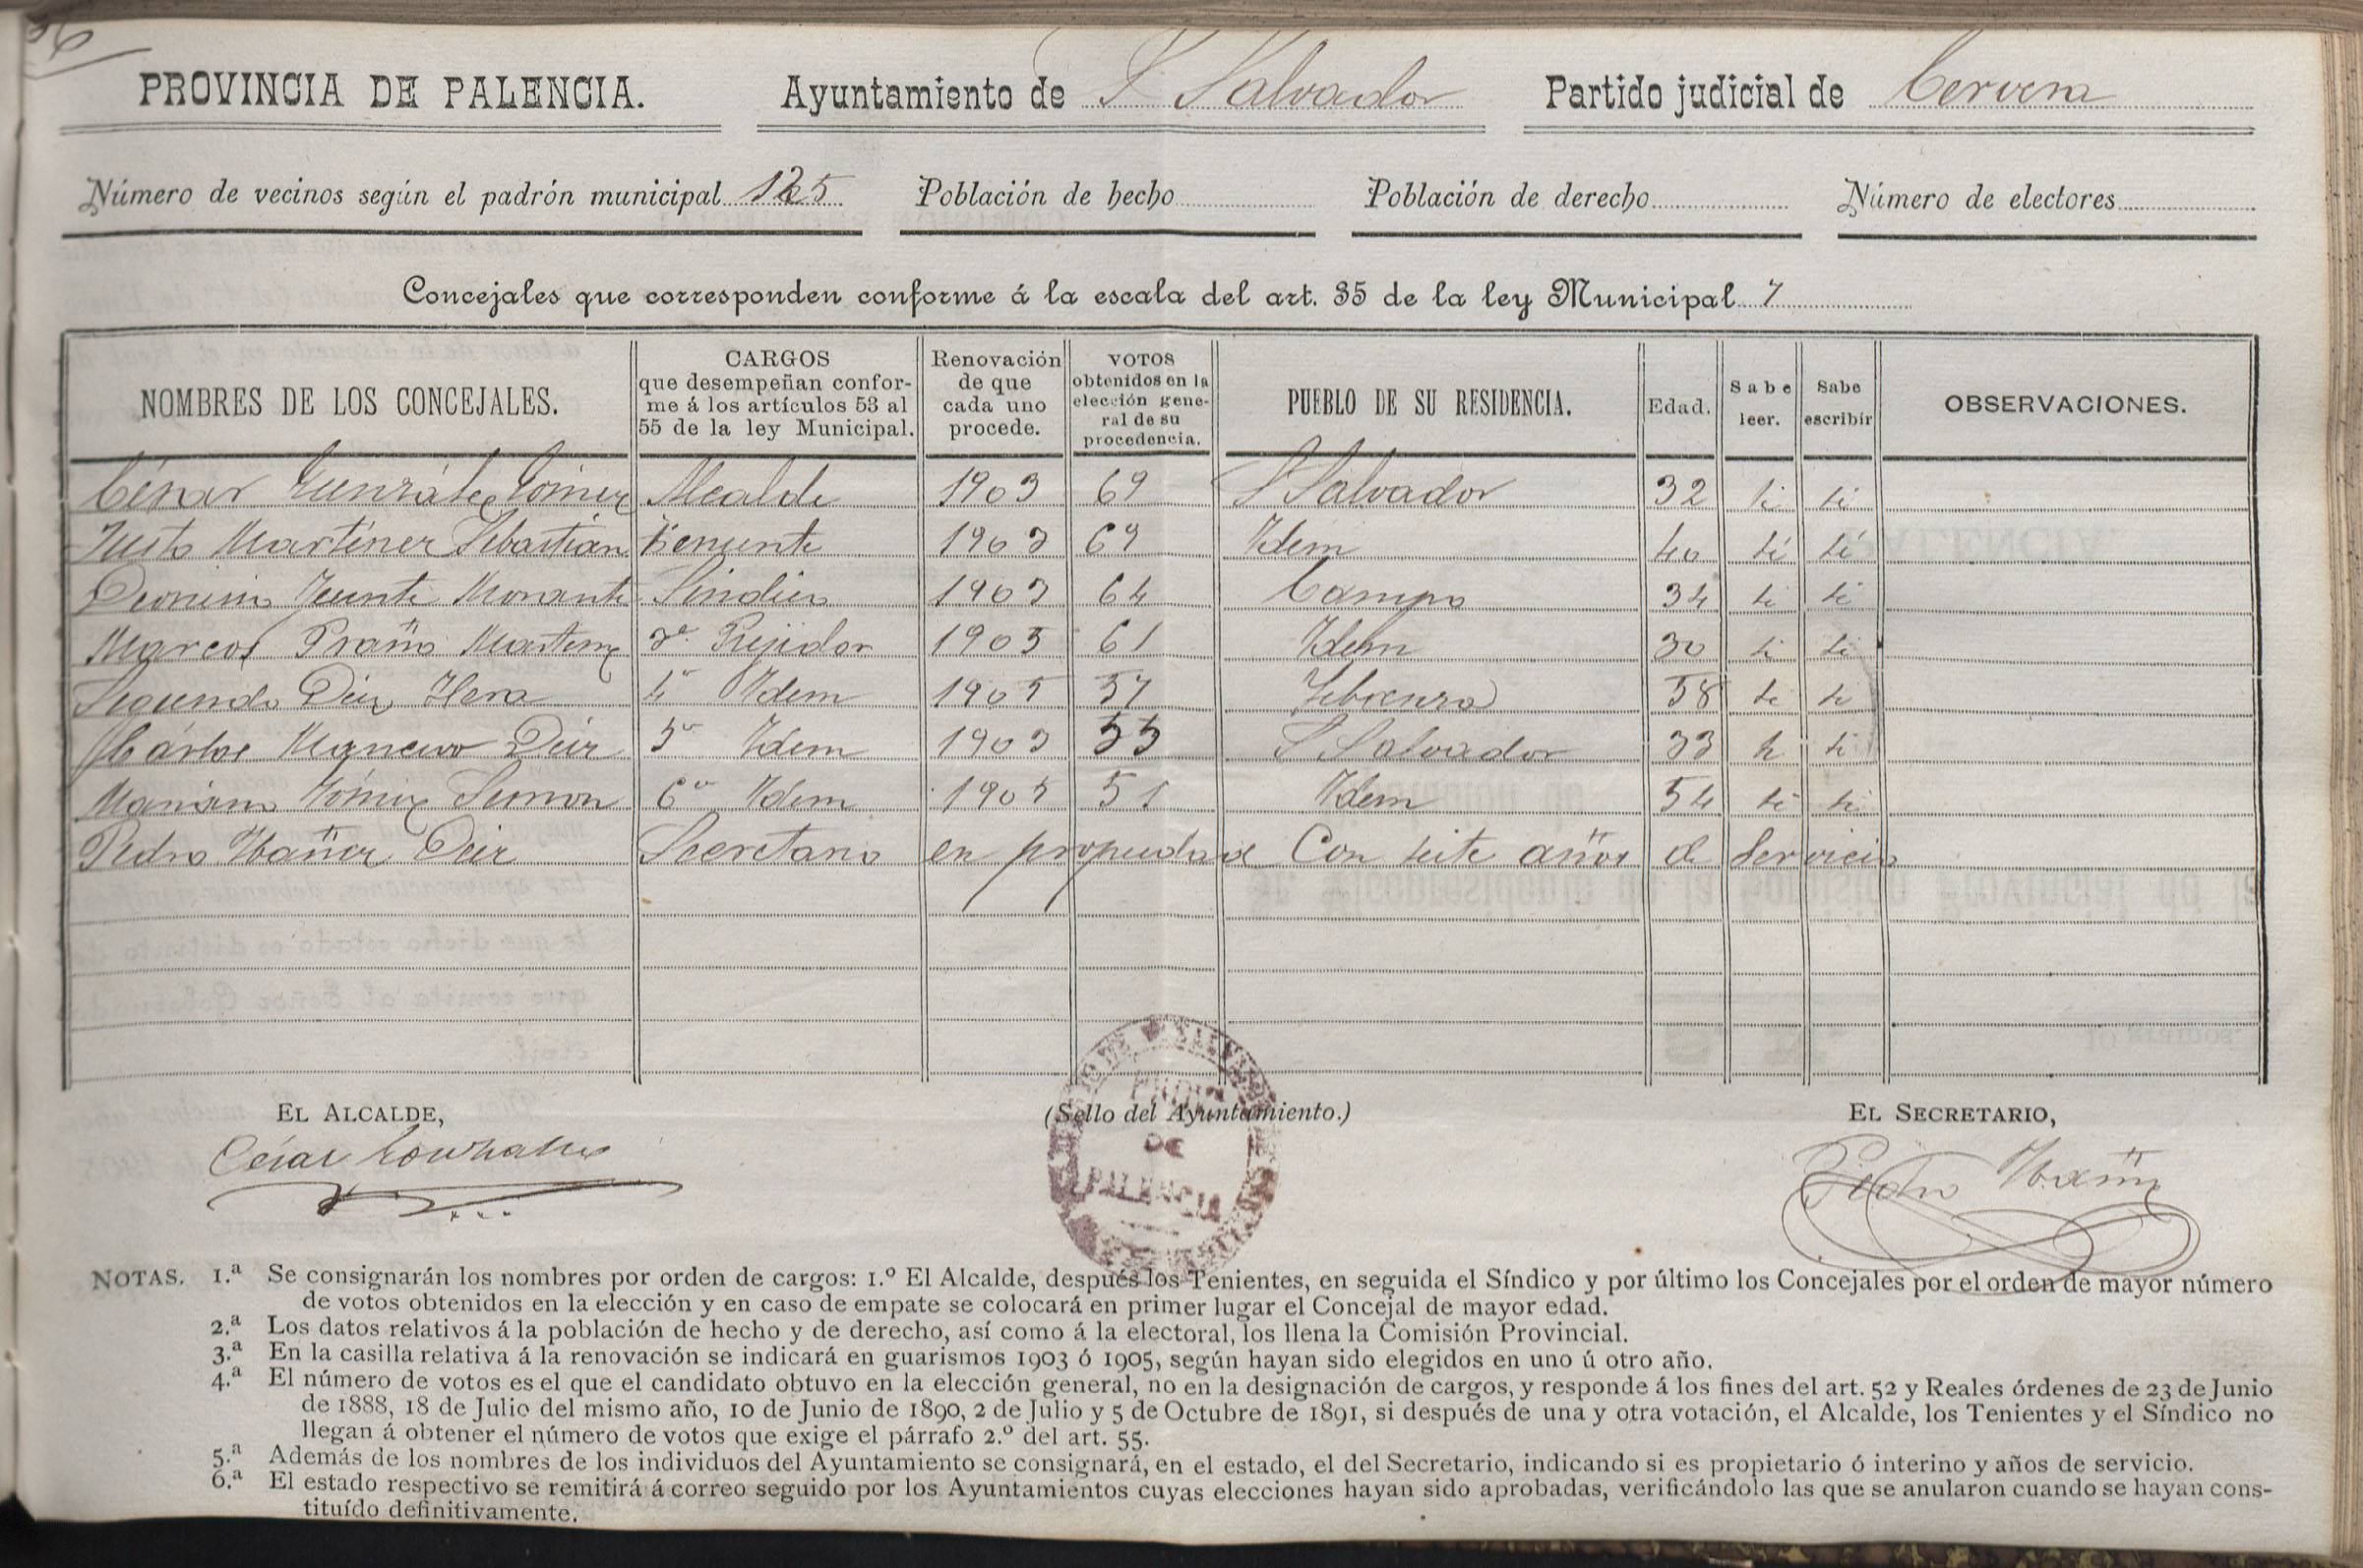 36
PROVINCIA DE PALENCIA. Ayuntamiento de S Salvador Partido judicial de Cervera
Número de vecinos según el padrón municipal 125 Población de hecho Población de derecho Número de electores
Concejales que corresponden conforme á la escala del art. 35 de la ley Municipal 7
NOMBRES DE LOS CONCEJALES. CARGOS que desempeñan conforme á los artículos 53 al 55 de la ley Municipal. Renovación de que cada uno procede. VOTOS obtenidos en la elección general de su procedencia. PUEBLO DE SU RESIDENCIA. Edad. Sabe leer. Sabe escribir OBSERVACIONES.
César Gonzáles Gómez Alcalde 1903 69 S Salvador 32 si si
Justo Martínez Sebastián Teniente 1903 69 Idem 40 sí sí
Dionisio Vicente Morante Síndico 1903 64 Campo 34 si si
Marcos Martínez 3º Rejidor 1905 61 Idem 30 si si
Segundo Diez Hera 4º Idem 1905 57 Lebanza 58 si si
Cárlos Mancebo Diez 5º Idem 1903 55 S Salvador 33 si si
Mariano Gómez Simon 6º Idem 1905 51 Idem 54 si si
Pedro Ibañez Diez Secretario en propiedad Con siete años de servicio
EL ALCALDE, (Sello del Ayuntamiento.) EL SECRETARIO,
PROV.ª
DE
PALENCIA
César Gonzales Pedro Ibañez
NOTAS. 1.ª Se consignarán los nombres por orden de cargos: 1.º El Alcalde, después los Tenientes, en seguida el Síndico y por último los Concejales por el orden de mayor número
de votos obtenidos en la elección y en caso de empate se colocará en primer lugar el Concejal de mayor edad.
2.ª Los datos relativos á la población de hecho y de derecho, así como á la electoral, los llena la Comisión Provincial.
3.ª En la casilla relativa á la renovación se indicará en guarismos 1903 ó 1905, según hayan sido elegidos en uno ú otro año.
4.ª El número de votos es el que el candidato obtuvo en la elección general, no en la designación de cargos, y responde á los fines del art. 52 y Reales órdenes de 23 de Junio
de 1888, 18 de Julio del mismo año, 10 de Junio de 1890, 2 de Julio y 5 de Octubre de 1891, si después de una y otra votación, el Alcalde, los Tenientes y el Síndico no
llegan á obtener el número de votos que exige el párrafo 2.º del art. 55.
5.ª Además de los nombres de los individuos del Ayuntamiento se consignará, en el estado, el del Secretario, indicando si es propietario ó interino y años de servicio.
6.ª El estado respectivo se remitirá á correo seguido por los Ayuntamientos cuyas elecciones hayan sido aprobadas, verificándolo las que se anularon cuando se hayan cons-
tituído definitivamente.